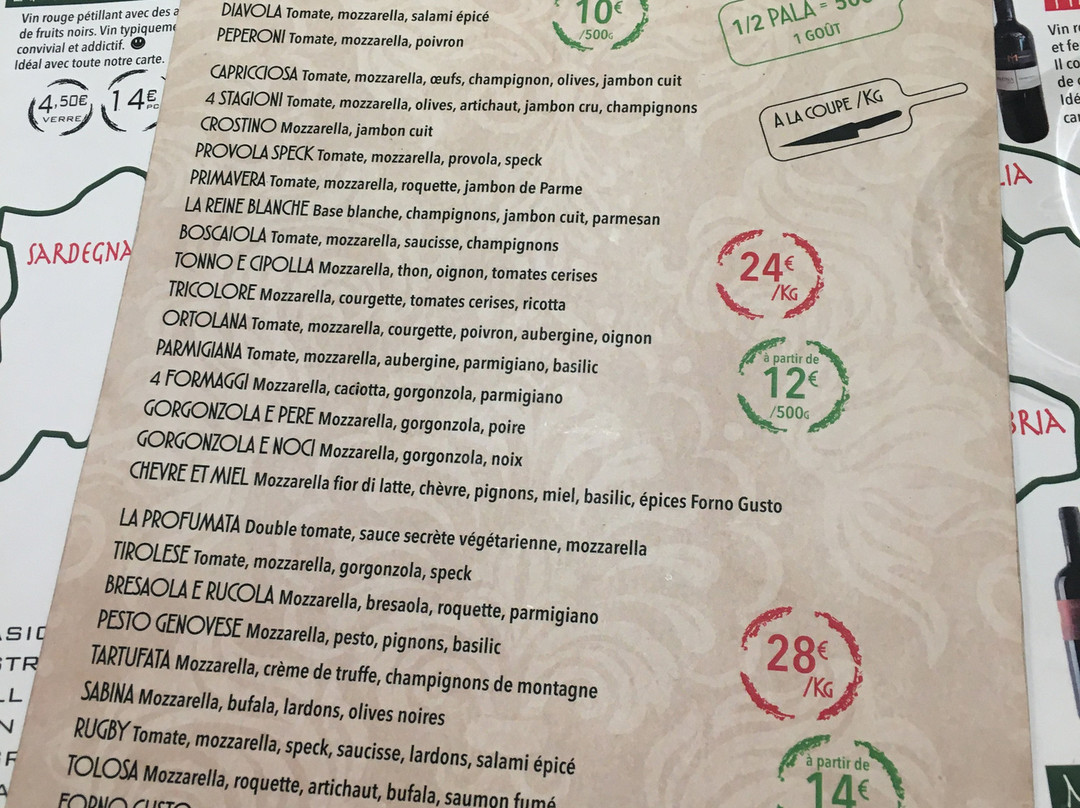 Vin rouge pétillant avec des a
de fruits noirs. Vin typiqueme
convivial et addictif.
Idéal avec toute notre carte.
4,50€
VERRE
14€
SARDEGNA
DIAVOLA Tomate, mozzarella, salami épicé
PEPERONI Tomate, mozzarella, poivron
10€
/500G
1/2 PALA = 500
1 GOÛT
CAPRICCIOSA Tomate, mozzarella, œufs, champignon, olives, jambon cuit
4 STAGIONI Tomate, mozzarella, olives, artichaut, jambon cru, champignons
CROSTINO Mozzarella, jambon cuit
PROVOLA SPECK Tomate, mozzarella, provola, speck
PRIMAVERA Tomate, mozzarella, roquette, jambon de Parme
LA REINE BLANCHE Base blanche, champignons, jambon cuit, parmesan
BOSCAIOLA Tomate, mozzarella, saucisse, champignons
TONNO E CIPOLLA Mozzarella, thon, oignon, tomates cerises
TRICOLORE Mozzarella, courgette, tomates cerises, ricotta
ORTOLANA Tomate, mozzarella, courgette, poivron, aubergine, oignon
PARMIGIANA Tomate, mozzarella, aubergine, parmigiano, basilic
4 FORMAGGI Mozzarella, caciotta, gorgonzola, parmigiano
GORGONZOLA E PERE Mozzarella, gorgonzola, poire
GORGONZOLA E NOCI Mozzarella, gorgonzola, noix
CHEVRE ET MIEL Mozzarella fior di latte, chèvre, pignons, miel, basilic, épices Forno Gusto
A LA COUPE /KG
24€
/KG
à partir de
12€
/500G
LA PROFUMATA Double tomate, sauce secrète végétarienne, mozzarella
TIROLESE Tomate, mozzarella, gorgonzola, speck
BRESAOLA E RUCOLA Mozzarella, bresaola, roquette, parmigiano
PESTO GENOVESE Mozzarella, pesto, pignons, basilic
TARTUFATA Mozzarella, crème de truffe, champignons de montagne
SABINA Mozzarella, bufala, lardons, olives noires
RUGBY Tomate, mozzarella, speck, saucisse, lardons, salami épicé
TOLOSA Mozzarella, roquette, artichaut, bufala, saumon fumé
FORNO GUSTO
28€
/KG
à partir de
14€
Vin r
et fe
Il co
de
Idé
ca
LIA
BRIA